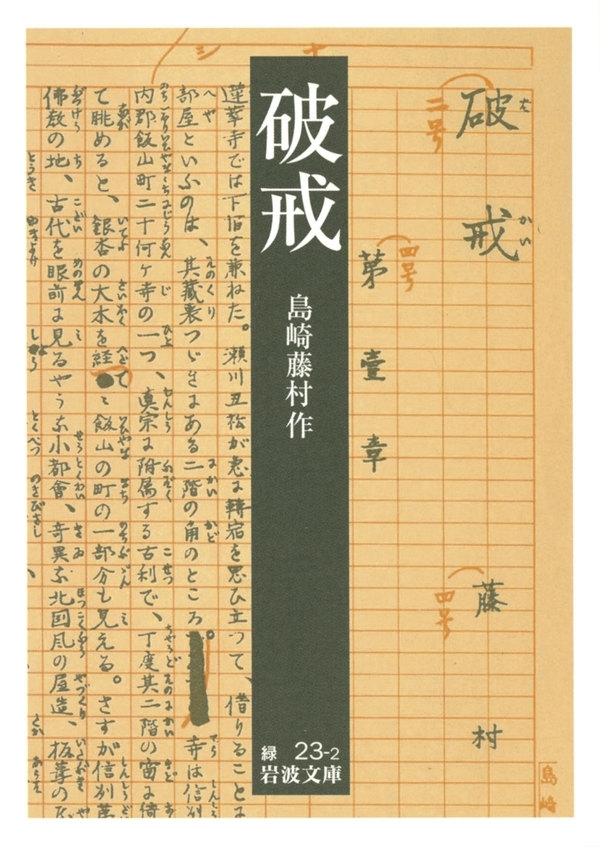 破戒
島崎藤村作
緑 23-2
岩波文庫
破戒
二号
藤村
四号
第壹章
四号
島崎
蓮華寺では下宿を兼ねた。瀬川丑松が急に轉宿を思ひ立つて、借りることに
部屋といふのは、其藏裏つゞきにある二階の角のところ。寺は信州
内郡飯山町二十何ヶ寺の一つ、眞宗に附属する古刹で、丁度其二階の窗に倚
て眺めると、銀杏の大木を経てゝ飯山の町の一部分も見える。さすが信州第
佛教の地、古代を眼前に見るやうな小都會、奇異な北国風の屋造、板葺の